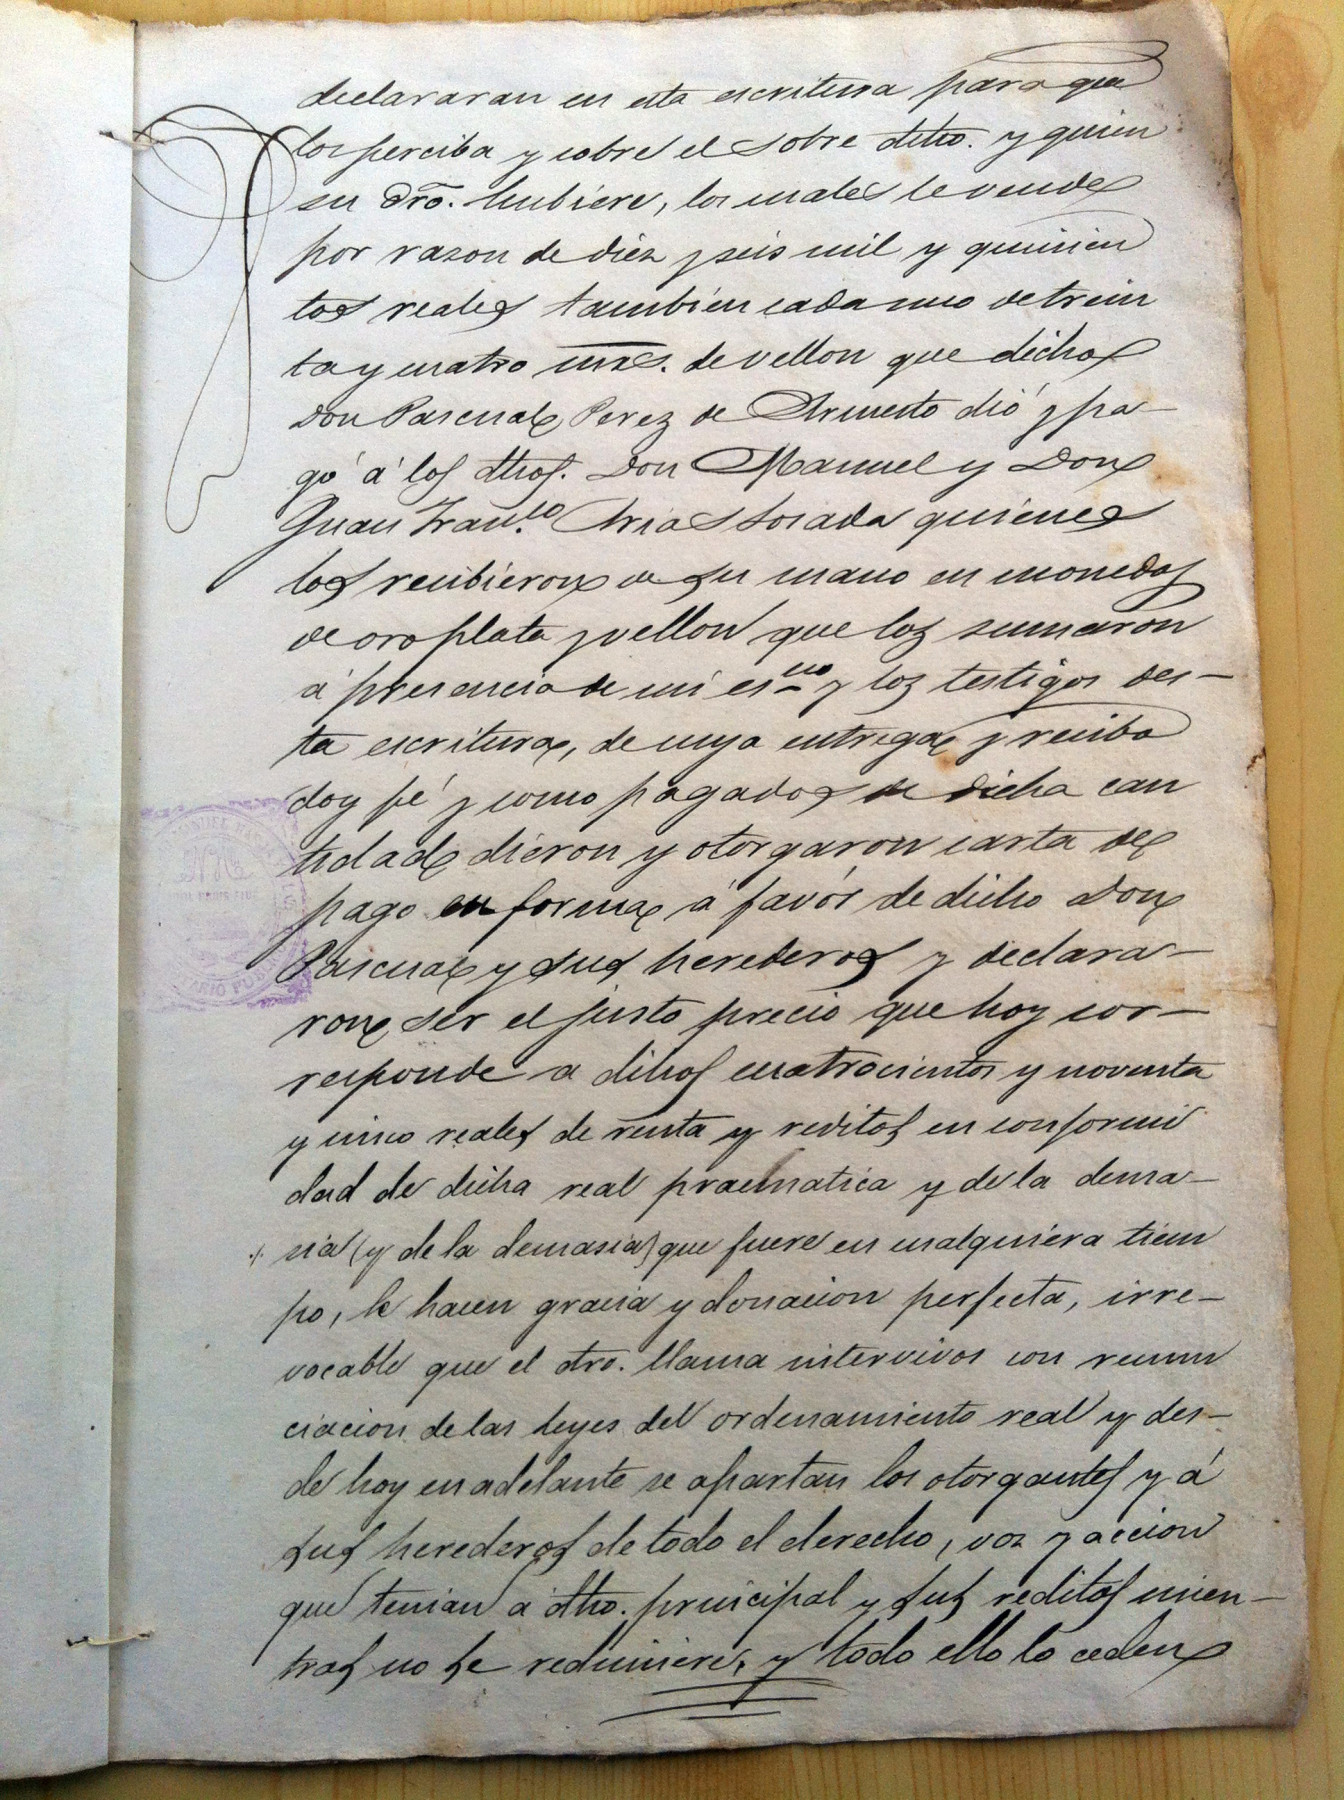 declararan en esta escritura para que
los perciba y cobre el sobre dicho. y quien
su dro. hubiere, los cuales le vende
por razon de diez y seis mil y quinien
tos reales tambien cada uno de trein
ta y cuatro mrs. de vellon que dicho
Don Pascual Perez de Armesto dió y pa-
gó á los dhos. Don Manuel y Don
Juan Fran.co Arias Losada quienes
los recibieron de su mano en monedas
de oro plata y vellon que los sumaron
á presencia de mi es.no y los testigos des-
ta escritura, de cuya entrega y recibo
doy fé y como pagados de dicha can
tidad dieron y otorgaron carta de
pago en forma á favór de dicho Don
Pascual y sus herederos y declara-
ron ser el justo precio que hoy cor-
responde a dichos cuatrocientos y noventa
y cinco reales de renta y reditos en conformi
dad de dicha real pracmatica y de la dema-
./. sia (y de la demasia) que fuere en cualquiera tiem
po, le hacen gracia y donacion perfecta, irre-
vocable que el dro. llama intervivos con renun
ciacion de las leyes del ordenamiento real y des-
de hoy en adelante se apartan los otorgantes y á
sus herederos de todo el derecho, voz y accion
que tenian á dho. principal y sus reditos mien-
tras no se redimiere, y todo ello lo ceden